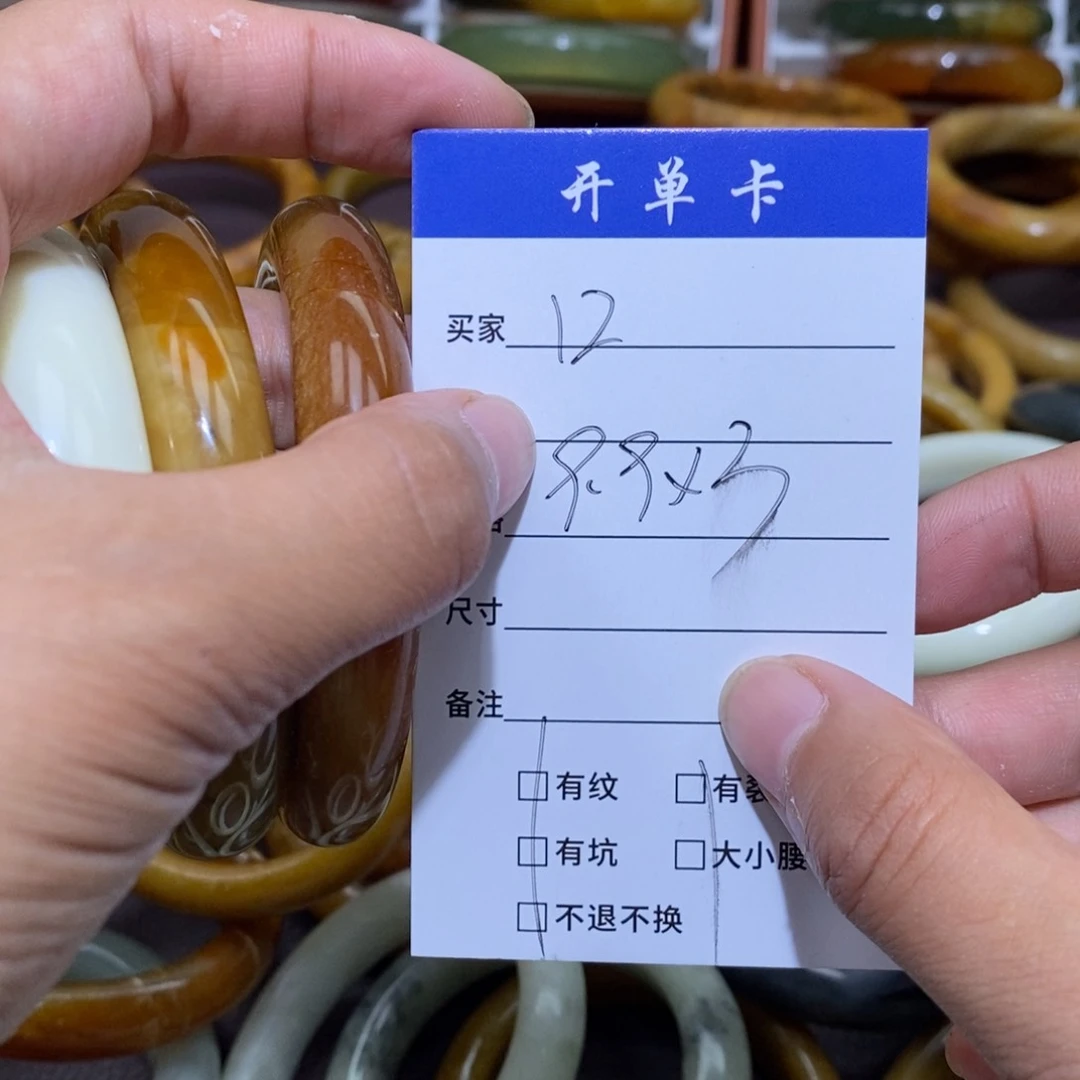 开单卡
买家 12
9.9x3
尺寸
备注
有纹 有裂
有坑 大小腰
不退不换